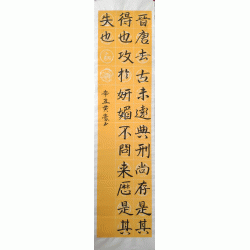 晋唐去古未遠典刑尚存是其
得也攻於妍媚不問来歷是其
失也